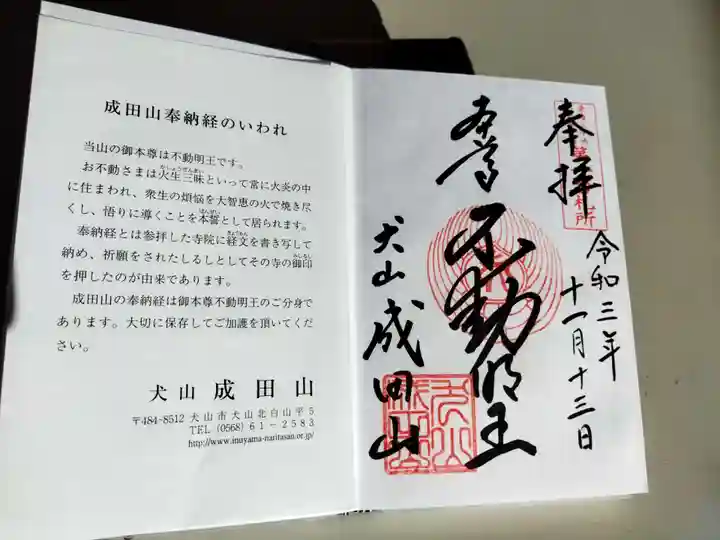 成田山奉納経のいわれ
当山の御本尊は不動明王です。
お不動さまは火生三昧といって常に火炎の中
に住まわれ、衆生の煩悩を大智恵の火で焼き尽
くし、悟りに導くことを本誓として居られます。
奉納経とは参拝した寺院に経文を書き写して
納め、祈願をされたしるしとしてその寺の御印
を押したのが由来であります。
成田山の奉納経は御本尊不動明王のご分身で
あります。大切に保存してご加護を頂いてくだ
さい。
犬山 成田山
〒484-8512 犬山市犬山北白山平5
TEL (0568) 61-2583
http://www.inuyama-naritasan.or.jp/
奉拝
令和三年
十一月十三日
本尊
不動明王
犬山
成田山